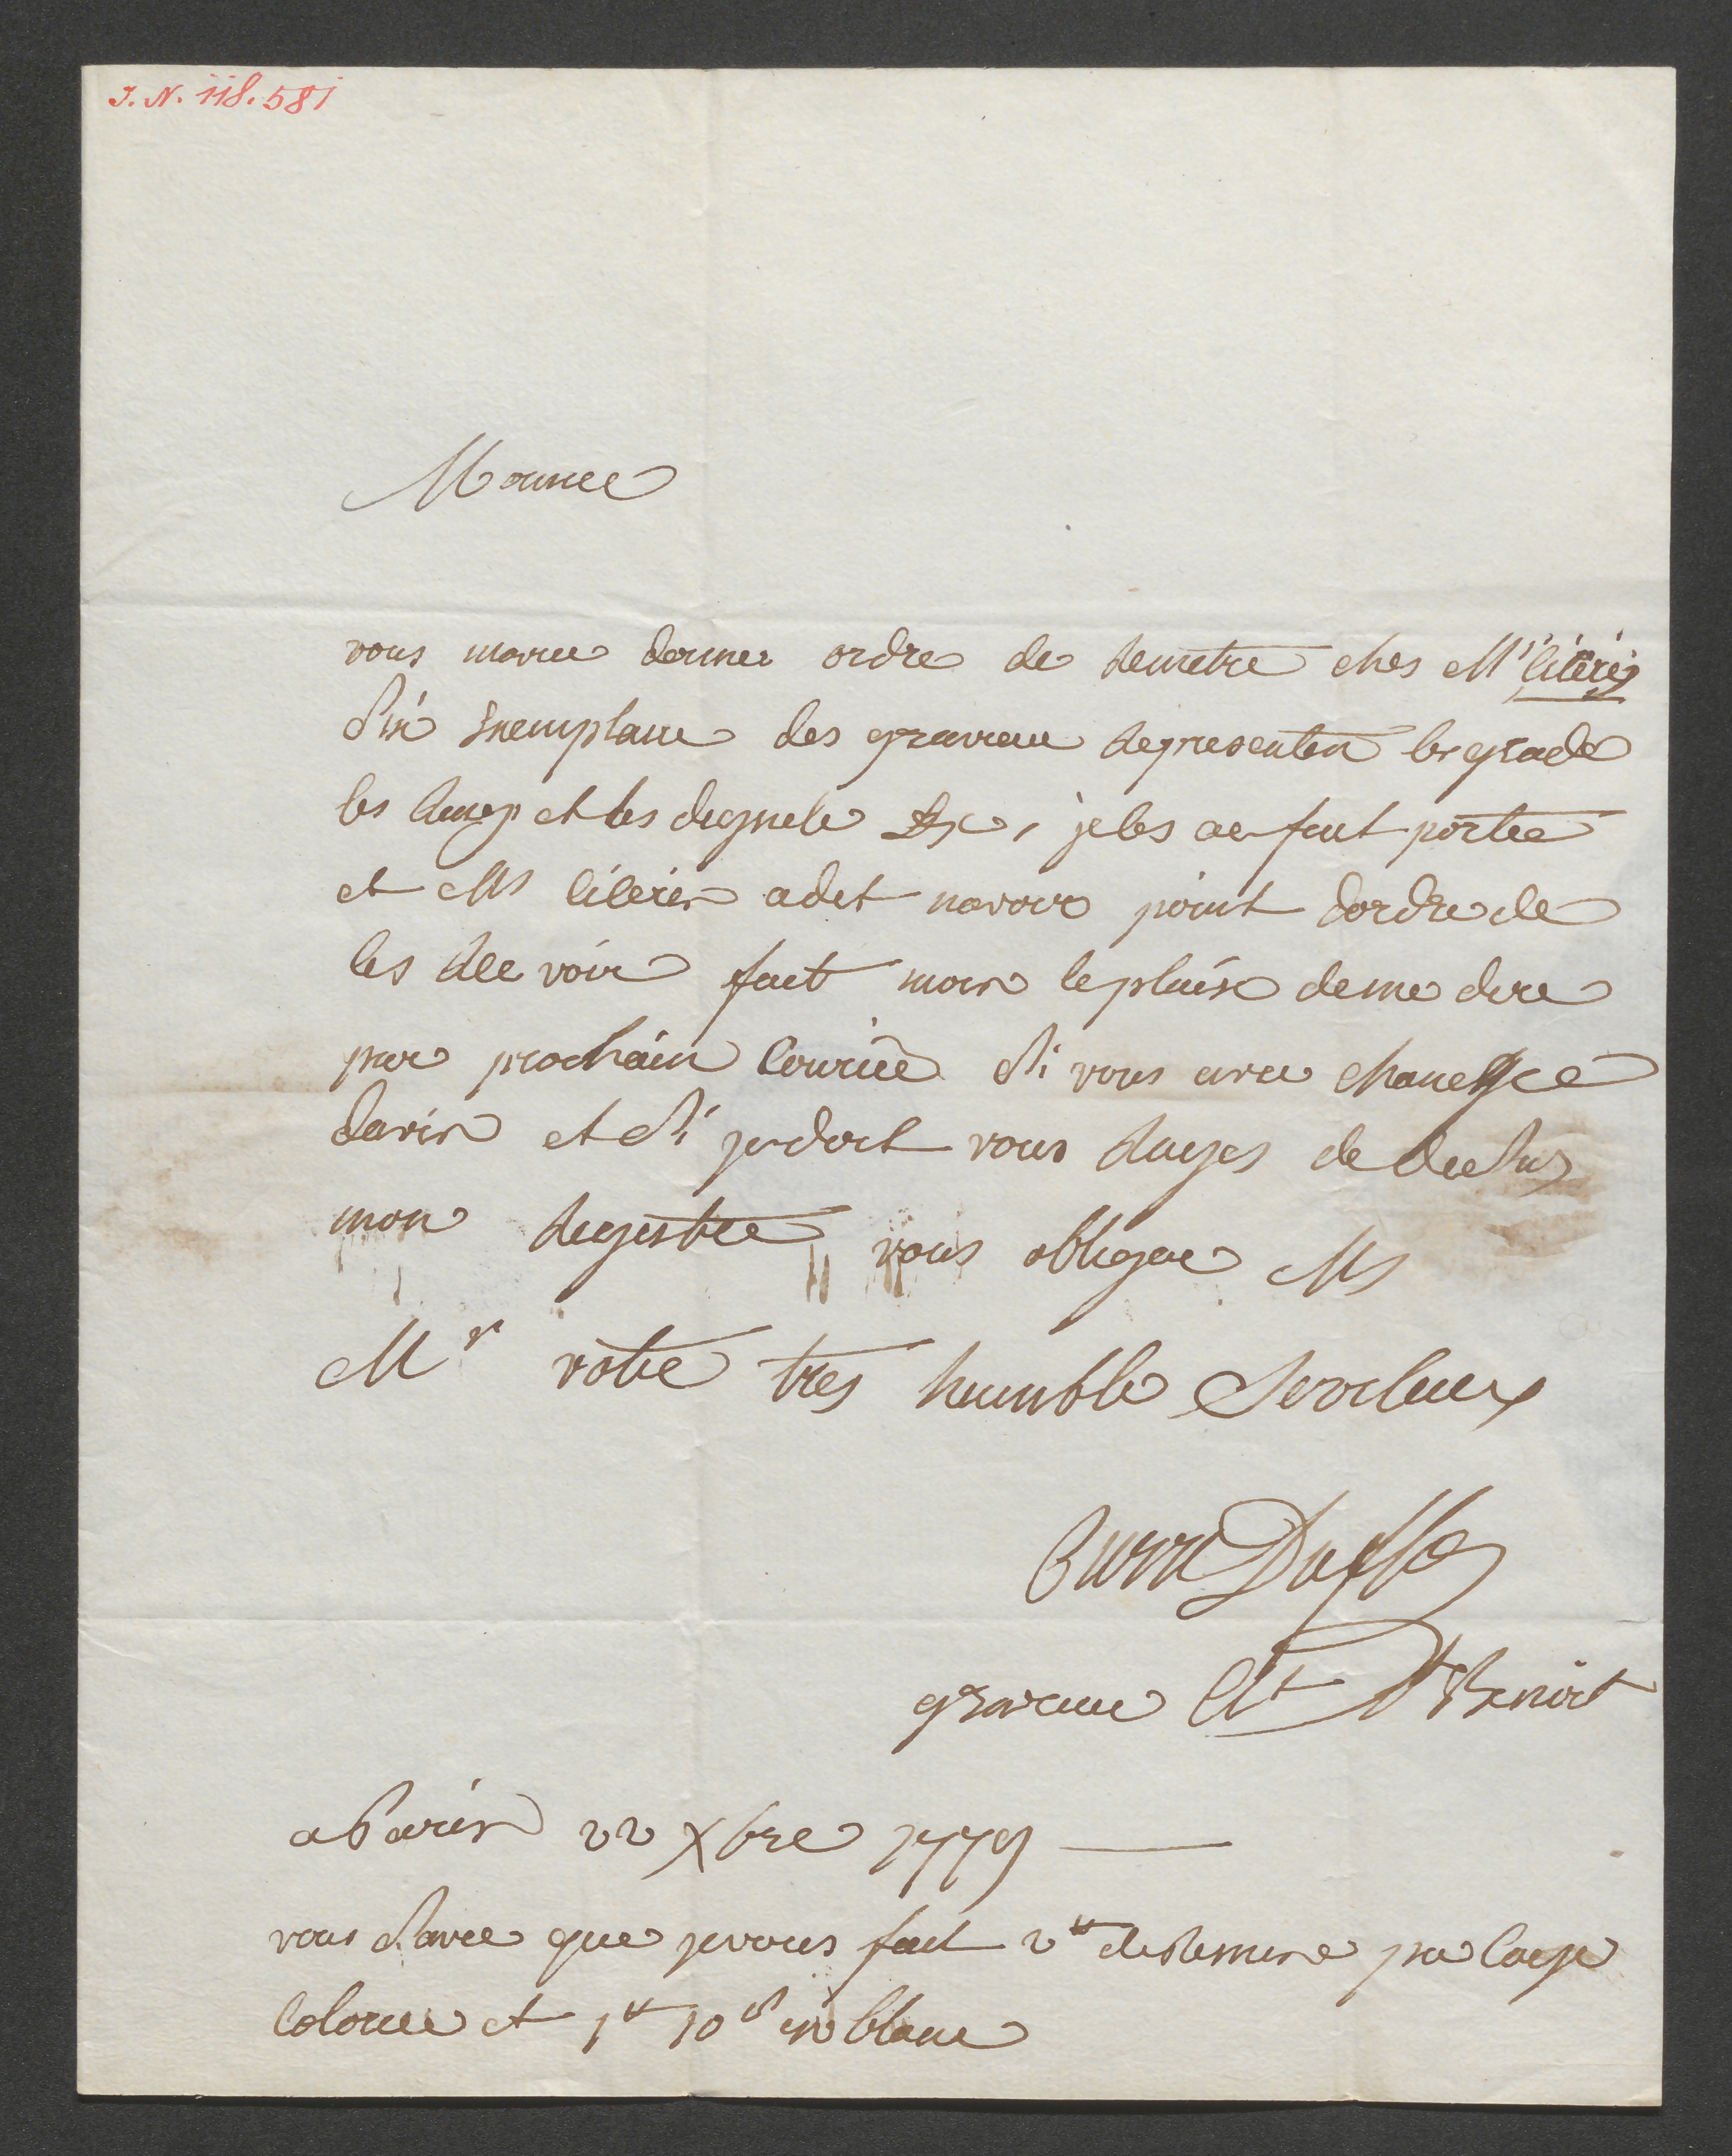 J. N. 118.581
Monsiee
vous mavee donner ordre de Remetre ches Mr
Six Exemplaire des graveure Representen les grade
les Rang et les dignité &c, je les ae fait portee
et Ms adit navoir point dordre de
les Ree voir fait mois le plaisir de me dire
par prochain Couriée Si vous avee change
davis et Si je doit vous Rayes de desus
mon Registree vous obligere Ms
Mr votre tres humble Serviteur
Duflos
graveure St Benoit
a Paris 22 Xbre 1779
vous Savee que je vous fait 2tt de Remise par Caye
Coloree et 1tt 10s en blanc